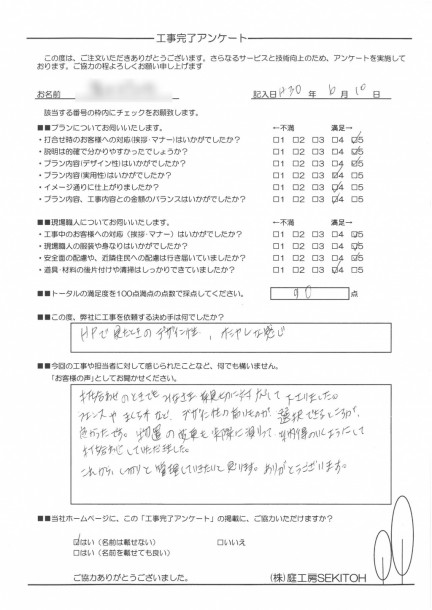 工事完了アンケート
この度は、ご注文いただきありがとうございます。さらなるサービスと技術向上のため、アンケートを実施して
おります。ご協力の程よろしくお願い申し上げます
お名前
記入日 H30 年 6 月 10 日
該当する番号の枠内にチェックをお願致します。
■■プランについてお伺いいたします。 ←不満 満足→
・打合せ時のお客様への対応(挨拶・マナー)はいかがでしたか? □1 □2 □3 □4 ☑5
・説明は的確で分かりやすかったでしょうか? □1 □2 □3 □4 ☑5
・プラン内容(デザイン性)はいかがでしたか? □1 □2 □3 ☑4 □5
・プラン内容(実用性)はいかがでしたか? □1 □2 □3 ☑4 □5
・イメージ通りに仕上がりましたか? □1 □2 □3 ☑4 □5
・プラン内容、工事内容との金額のバランスはいかがでしたか? □1 □2 □3 ☑4 □5
■■現場職人についてお伺いいたします。 ←不満 満足→
・工事中のお客様への対応(挨拶・マナー)はいかがでしたか? □1 □2 □3 □4 ☑5
・現場職人の服装や身なりはいかがでしたか? □1 □2 □3 □4 ☑5
・安全面の配慮や、近隣住民への配慮は行き届いていましたか? □1 □2 □3 □4 ☑5
・道具・材料の後片付けや清掃はしっかりできていましたか? □1 □2 □3 ☑4 □5
■■トータルの満足度を100点満点の点数で採点してください。 90 点
■■この度、弊社に工事を依頼する決め手は何でしたか?
HPで見たときのデザイン性、オシャレな感じ
■■今回の工事や担当者に対して感じられたことなど、何でも構いません。
「お客様の声」としてお聞かせください。
打ち合わせのときでも 親切に対応して下さりました。
フェンスや など、デザイン性の高いものが、選択できるところが、
良かったです。物置の も実際に 、納得のいくようにして
いただきました。
これから、しっかりと管理していきたいと思います。ありがとうございます。
■■当社ホームページに、この「工事完了アンケート」の掲載に、ご協力いただけますか?
☑はい(名前は載せない) □いいえ
□はい(名前を載せても良い)
ご協力ありがとうございました。
(株)庭工房SEKITOH